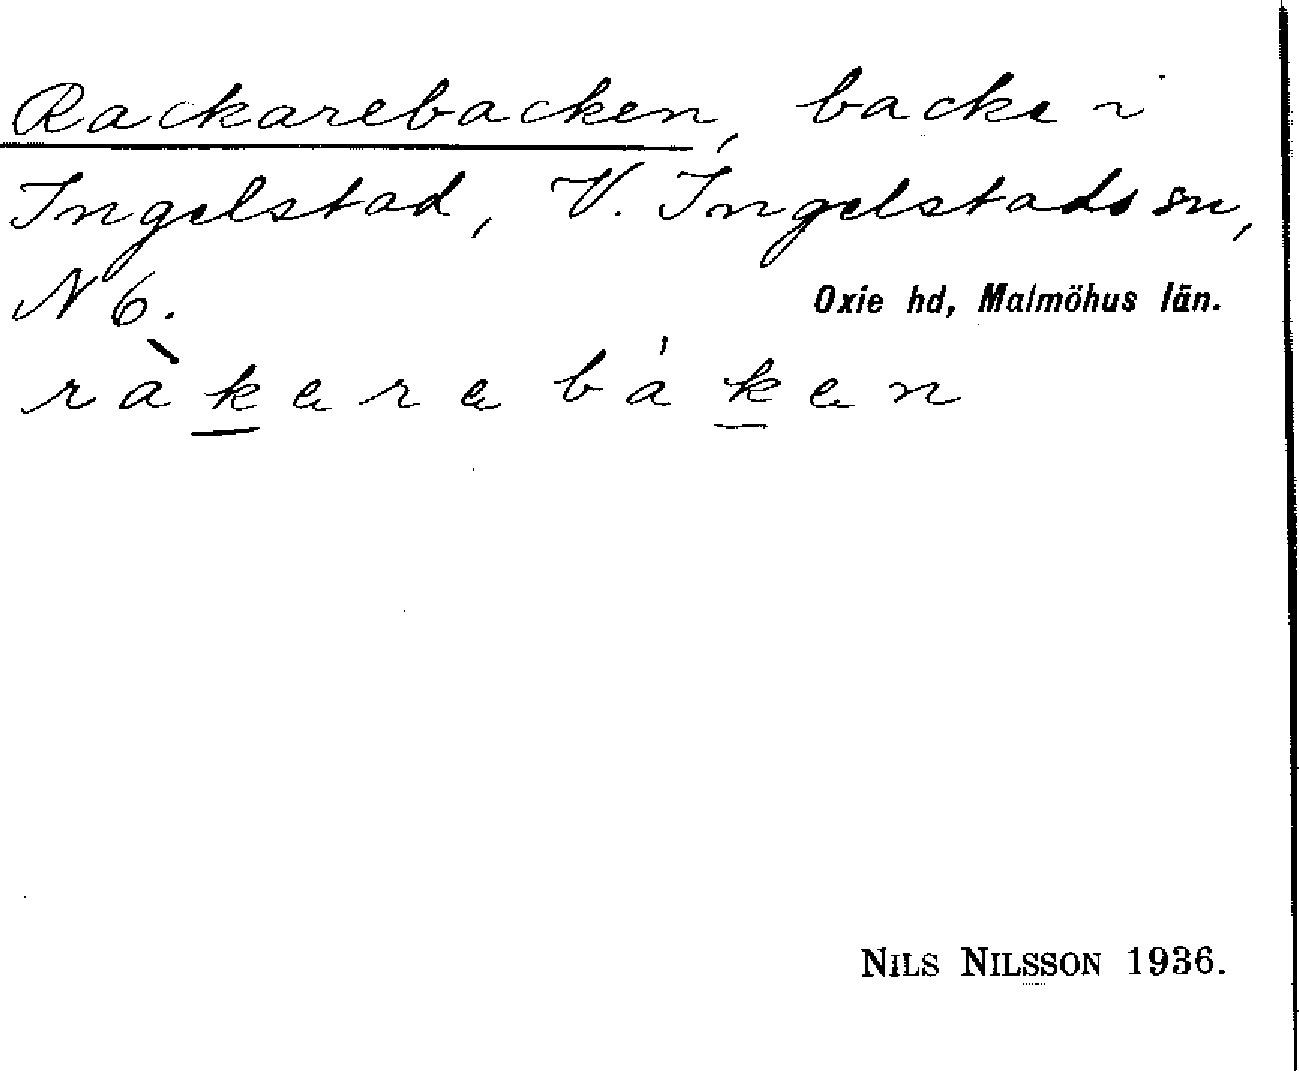 Rackarebacken, backe i
Ingelstad, V. Ingelstads sn,
N 6. Oxie hd, Malmöhus län.
ràkarabákan
NILS NILSSON 1936.